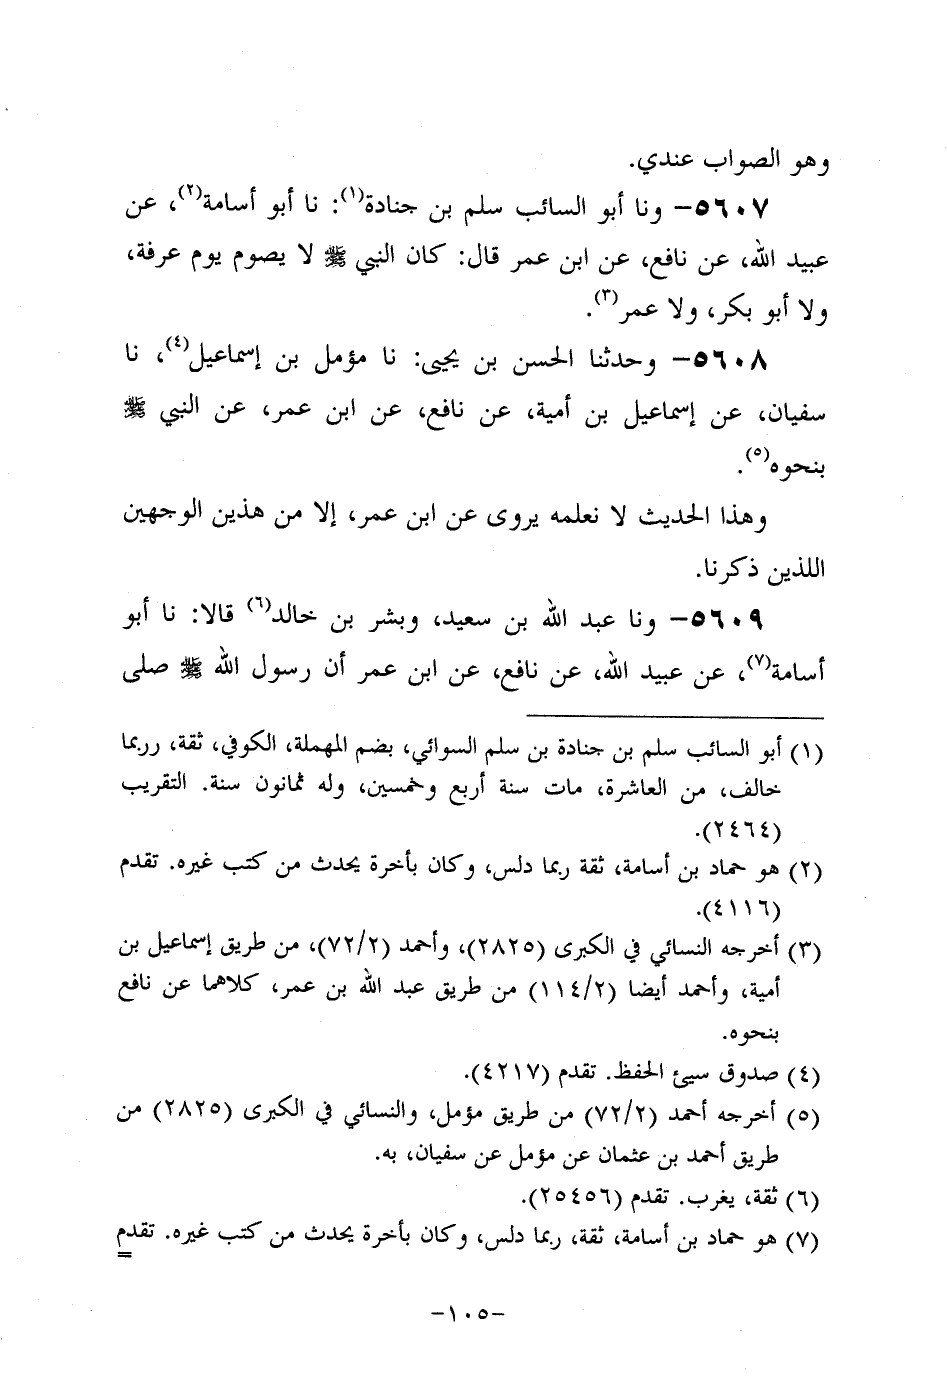 وهو الصواب عندي.
٥٦٠٧- ونا أبو السائب سلم بن جنادة(١): نا أبو أسامة(٢)، عن
عبيد الله، عن نافع، عن ابن عمر قال: كان النبي ﷺ لا يصوم يوم عرفة،
ولا أبو بكر، ولا عمر(٣).
٥٦٠٨- وحدثنا الحسن بن يحيى: نا مؤمل بن إسماعيل(٤)، نا
سفيان، عن إسماعيل بن أمية، عن نافع، عن ابن عمر، عن النبي ﷺ
بنحوه(٥).
وهذا الحديث لا نعلمه يروى عن ابن عمر، إلا من هذين الوجهين
اللذين ذكرنا.
٥٦٠٩- ونا عبد الله بن سعيد، وبشر بن خالد(٦) قالا: نا أبو
أسامة(٧)، عن عبيد الله، عن نافع، عن ابن عمر أن رسول الله ﷺ صلى
(١) أبو السائب سلم بن جنادة بن سلم السوائي، بضم المهملة، الكوفي، ثقة، رربما
خالف، من العاشرة، مات سنة أربع وخمسين، وله ثمانون سنة. التقريب
(٢٤٦٤).
(٢) هو حماد بن أسامة، ثقة ربما دلس، وكان بأخرة يحدث من كتب غيره. تقدم
(٤١١٦).
(٣) أخرجه النسائي في الكبرى (٢٨٢٥)، وأحمد (٧٢/٢)، من طريق إسماعيل بن
أمية، وأحمد أيضا (١١٤/٢) من طريق عبد الله بن عمر، كلاهما عن نافع
بنحوه.
(٤) صدوق سيئ الحفظ. تقدم (٤٢١٧).
(٥) أخرجه أحمد (٧٢/٢) من طريق مؤمل، والنسائي في الكبرى (٢٨٢٥) من
طريق أحمد بن عثمان عن مؤمل عن سفيان، به.
(٦) ثقة، يغرب. تقدم (٢٥٤٥٦).
(٧) هو حماد بن أسامة، ثقة، ربما دلس، وكان بأخرة يحدث من كتب غيره. تقدم
-١٠٥-